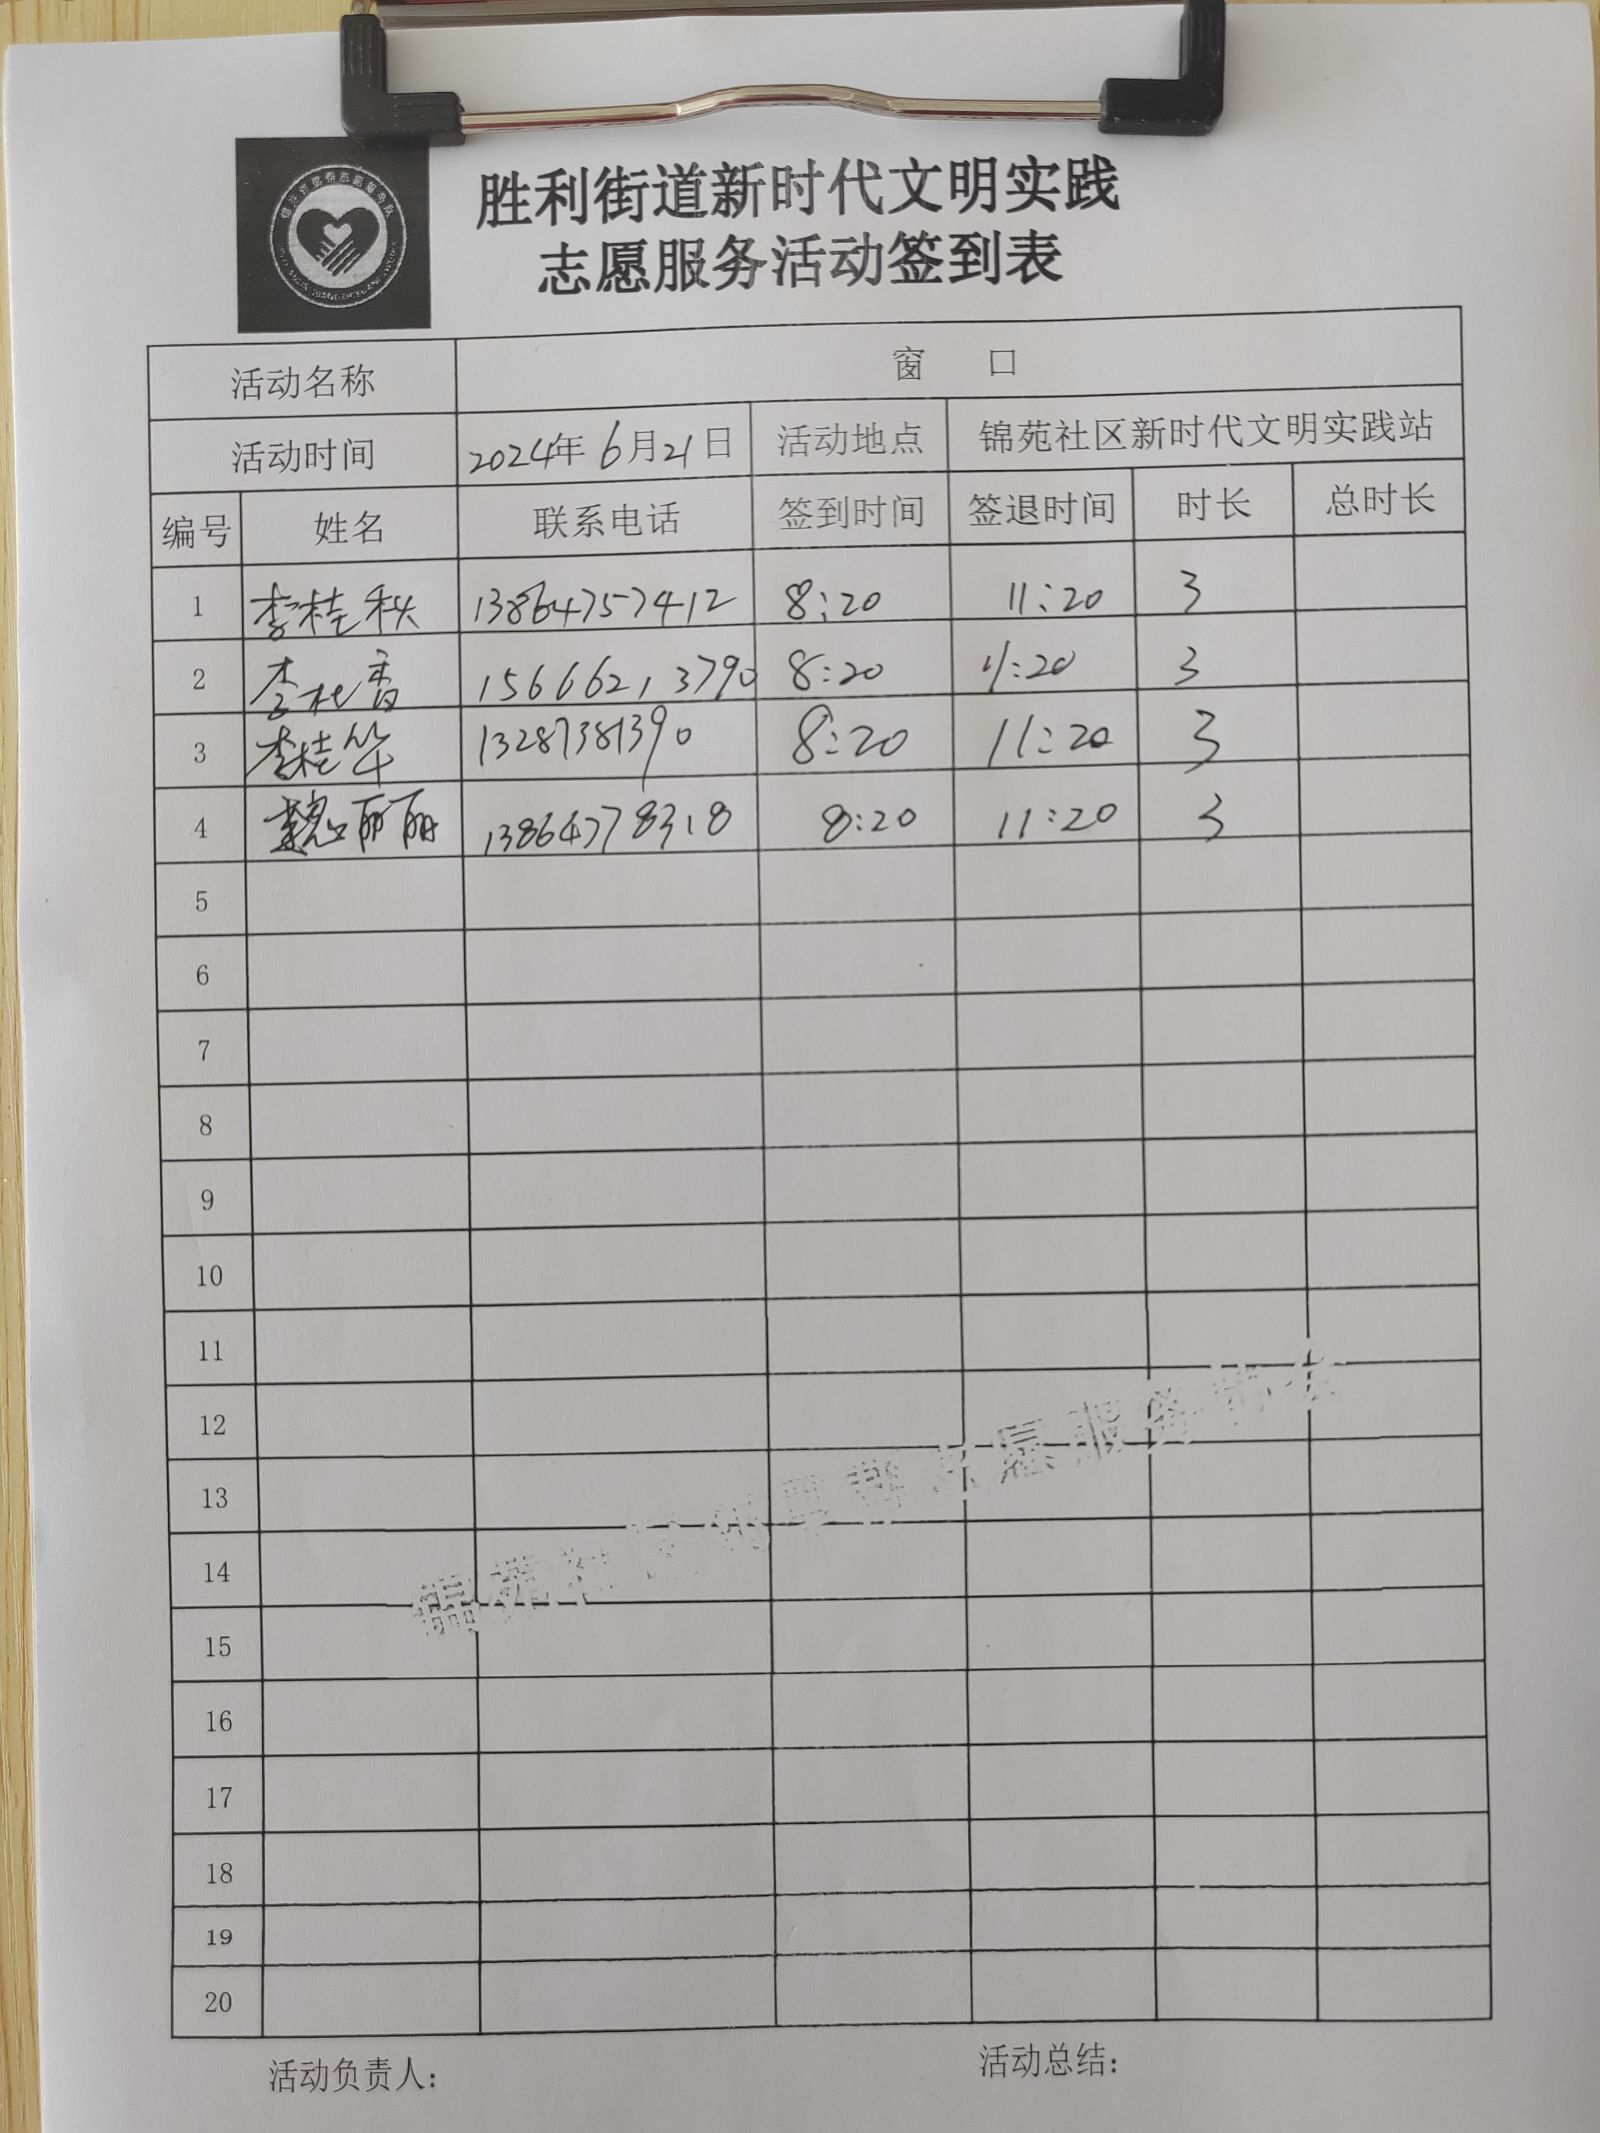 胜利街道新时代文明实践
志愿服务活动签到表
活动名称 窗 口
活动时间 2024年6月21日 活动地点 锦苑社区新时代文明实践站
编号 姓名 联系电话 签到时间 签退时间 时长 总时长
1 李桂秋 13864757412 8:20 11:20 3
2 李桂香 15666213790 8:20 11:20 3
3 李桂华 13287381390 8:20 11:20 3
4 魏丽丽 13864778318 8:20 11:20 3
5
6
7
8
9
10
11
12
13
14
15
16
17
18
19
20
活动负责人: 活动总结: